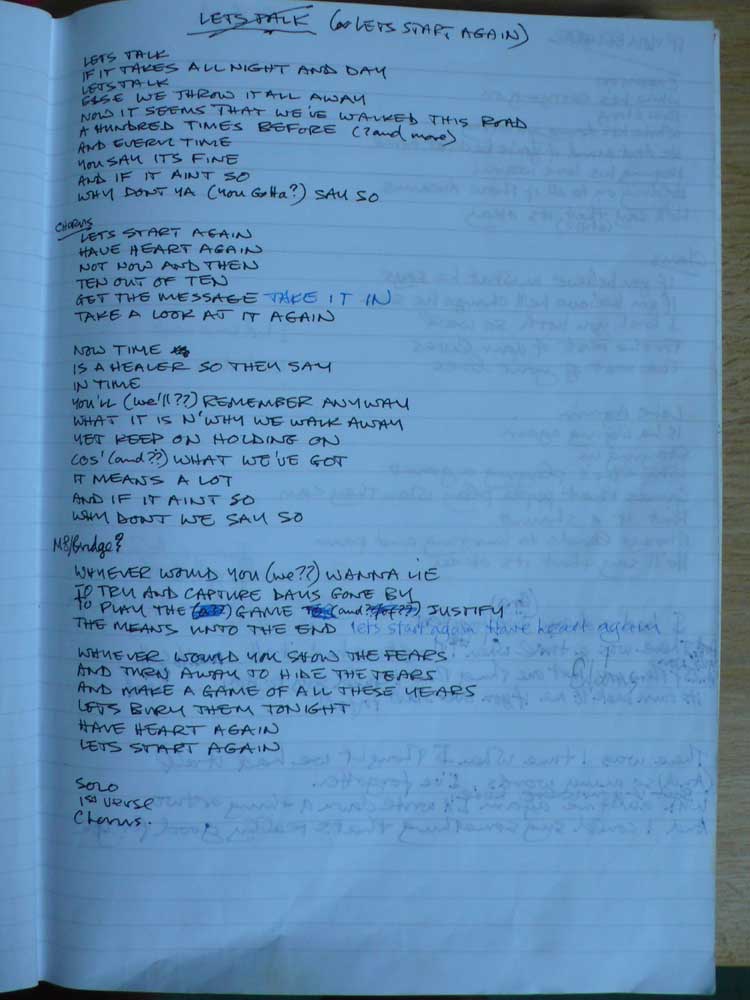 LETS TALK (or LETS START AGAIN)
LETS TALK
IF IT TAKES ALL NIGHT AND DAY
LETS TALK
ELSE WE THROW IT ALL AWAY
NOW IT SEEMS THAT WE'VE WALKED THIS ROAD
A HUNDRED TIMES BEFORE (? and more)
AND EVERY TIME
YOU SAY ITS FINE
AND IF IT AINT SO
WHY DONT YA (YOU GOTTA?) SAY SO
CHORUS
LETS START AGAIN
HAVE HEART AGAIN
NOT NOW AND THEN
TEN OUT OF TEN
GET THE MESSAGE TAKE IT IN
TAKE A LOOK AT IT AGAIN
NOW TIME
IS A HEALER SO THEY SAY
IN TIME
YOU'LL (we'll??) REMEMBER ANYWAY
WHAT IT IS N' WHY WE WALK AWAY
YET KEEP ON HOLDING ON
COS' (and??) WHAT WE'VE GOT
IT MEANS A LOT
AND IF IT AINT SO
WHY DONT WE SAY SO
M8/Bridge?
WHYEVER WOULD YOU (we??) WANNA LIE
TO TRY AND CAPTURE DAYS GONE BY
TO PLAY THE GAME (and??) JUSTIFY
THE MEANS UNTO THE END lets start again Have heart again
WHYEVER WOULD YOU SHOW THE FEARS
AND TURN AWAY TO HIDE THE TEARS
AND MAKE A GAME OF ALL THESE YEARS
LETS BURY THEM TONIGHT
HAVE HEART AGAIN
LETS START AGAIN
SOLO
1st verse
Chorus.